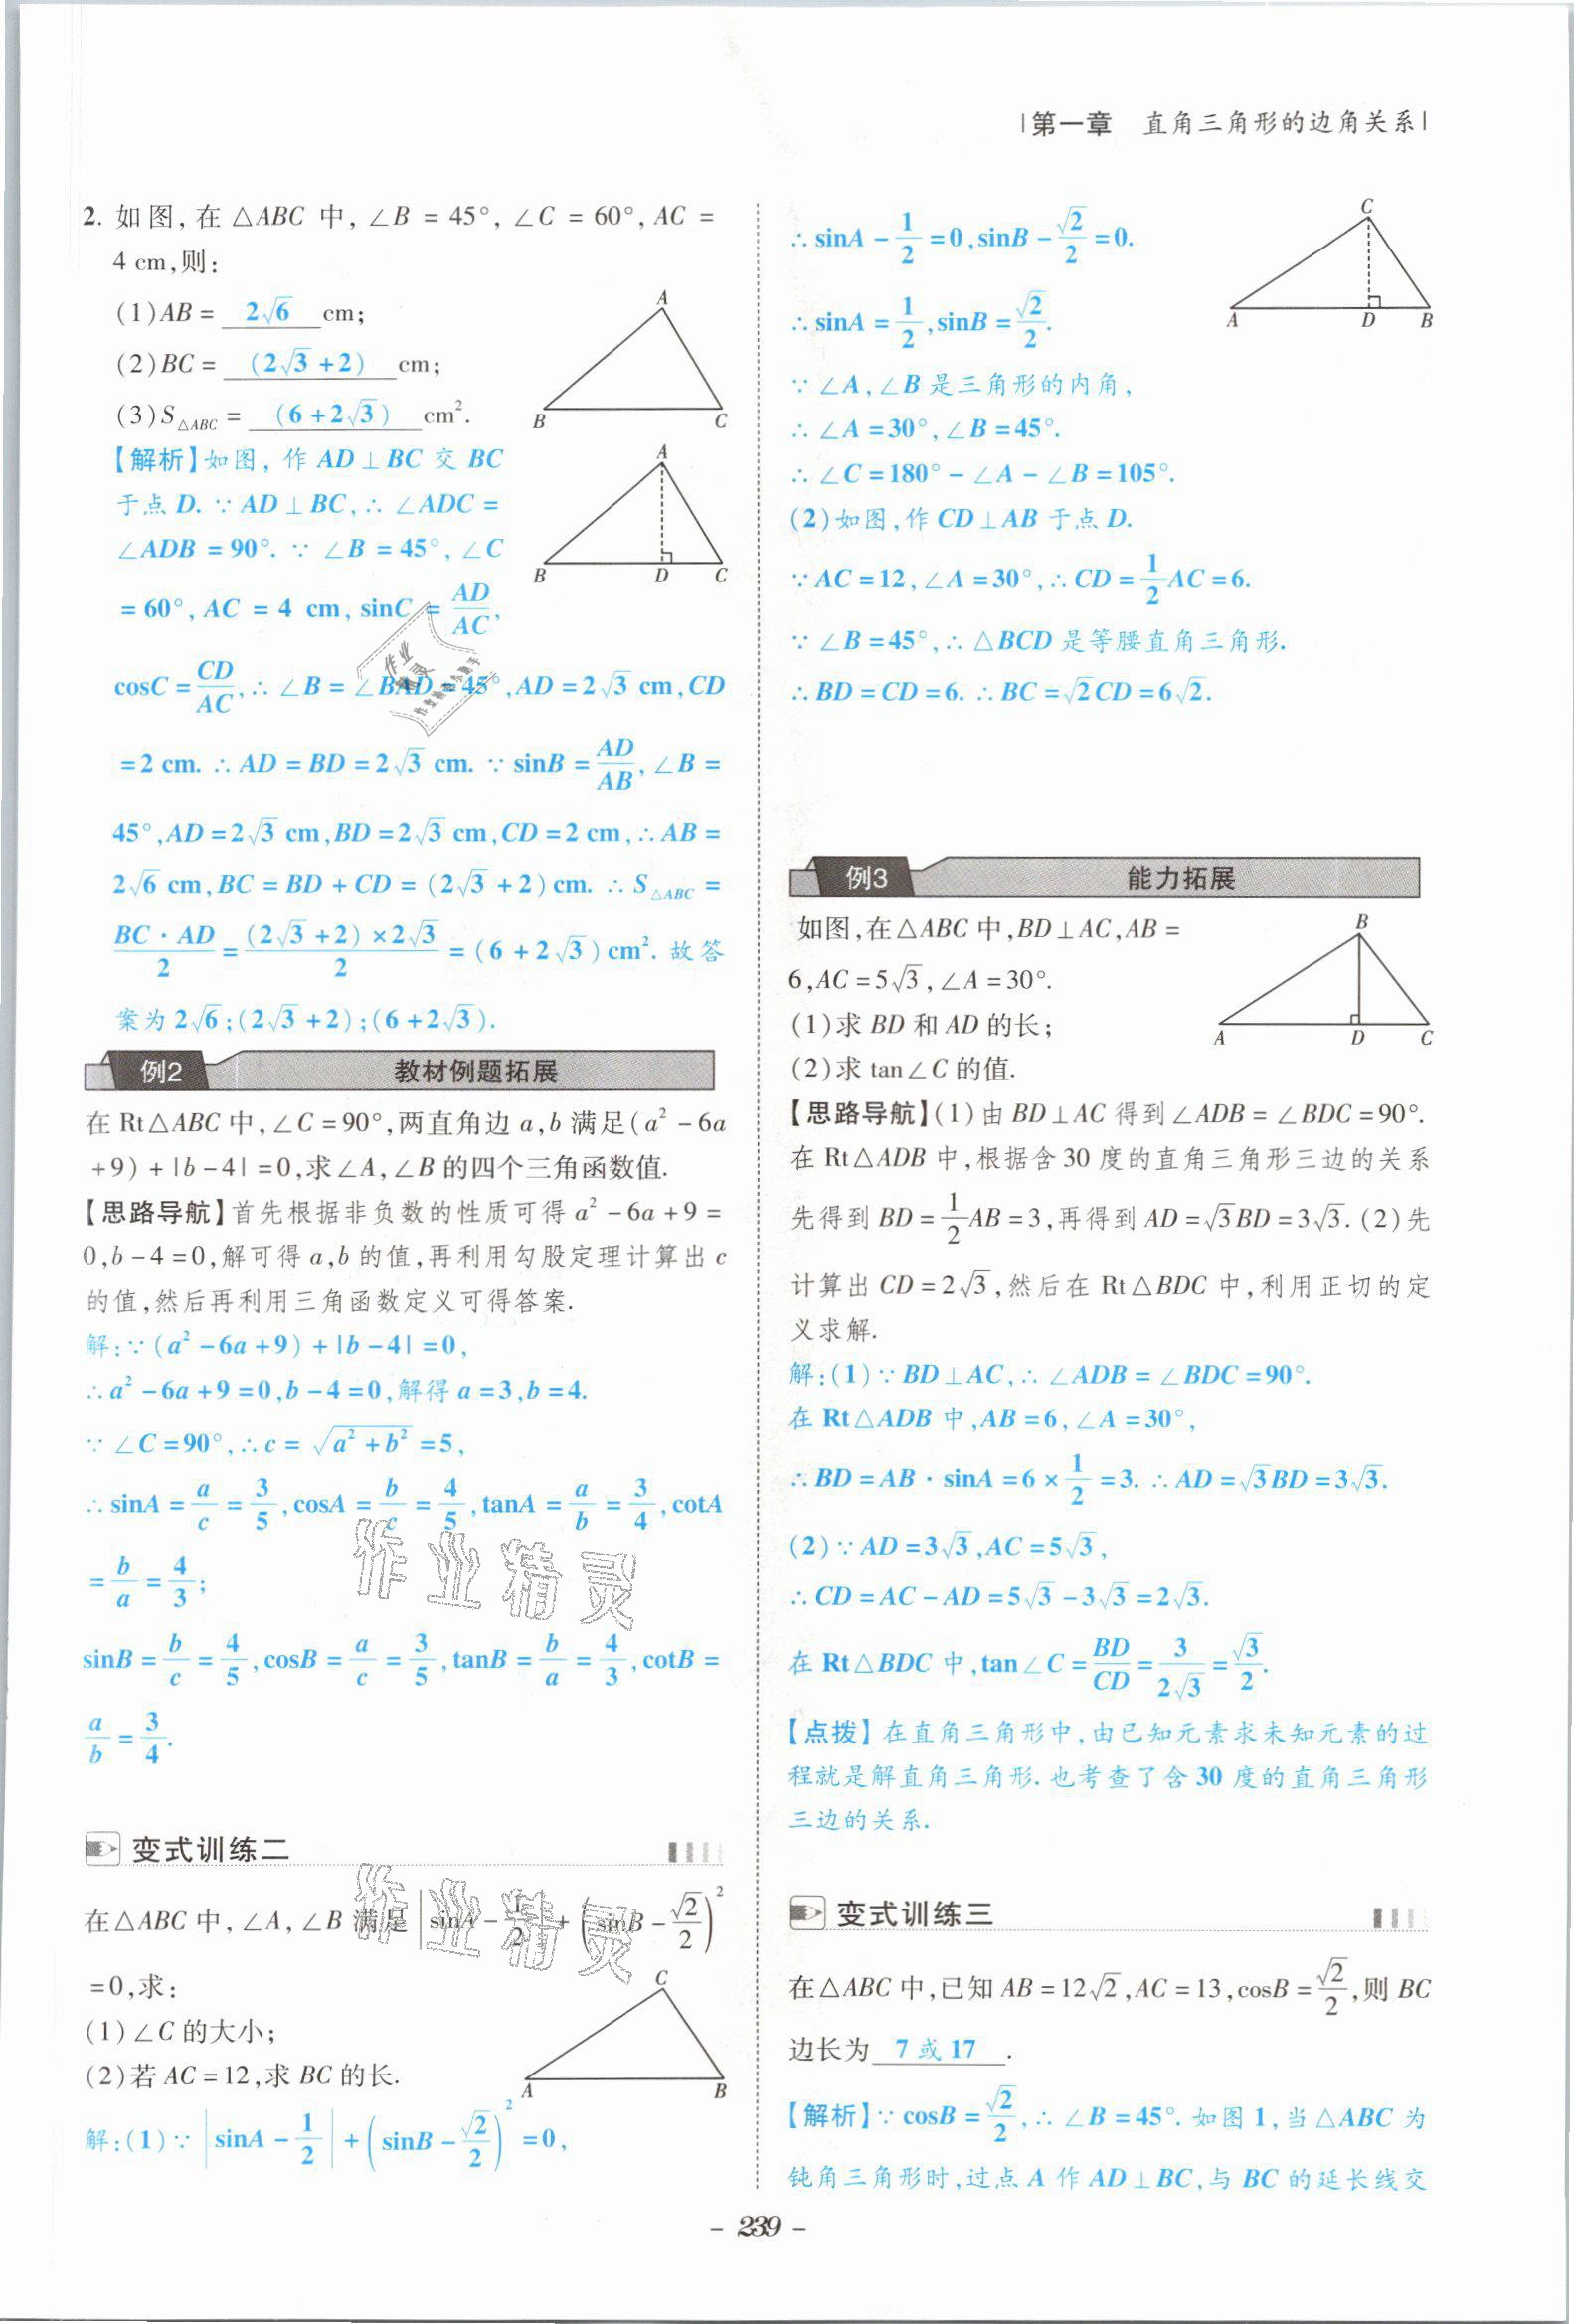 |第一章 直角三角形的边角关系|
2. 如图,在△ABC 中,∠B = 45°,∠C = 60°,AC =
4 cm,则:
(1)AB = 2√6 cm;
(2)BC = (2√3 +2) cm;
(3)S△ABC = (6+2√3) cm².
A
B
C
【解析】如图, 作 AD⊥BC 交 BC
于点 D. ∵ AD⊥BC,∴ ∠ADC =
∠ADB = 90°. ∵ ∠B = 45°,∠C
= 60°, AC = 4 cm, sinC = AD/AC,
A
B
D
C
cosC = CD/AC,∴ ∠B = ∠BAD = 45°,AD = 2√3 cm,CD
= 2 cm. ∴ AD = BD = 2√3 cm. ∵ sinB = AD/AB,∠B =
45°,AD = 2√3 cm,BD = 2√3 cm,CD = 2 cm,∴ AB =
2√6 cm,BC = BD + CD = (2√3 + 2)cm. ∴ S△ABC =
BC · AD/2 = (2√3 +2)×2√3/2 = (6 + 2√3)cm². 故答
案为 2√6;(2√3 +2);(6+2√3).
例2 教材例题拓展
在 Rt△ABC 中,∠C = 90°,两直角边 a,b 满足(a² - 6a
+9) + |b - 4| = 0,求∠A,∠B 的四个三角函数值.
【思路导航】首先根据非负数的性质可得 a² - 6a + 9 =
0,b - 4 = 0,解可得 a,b 的值,再利用勾股定理计算出 c
的值,然后再利用三角函数定义可得答案.
解:∵ (a² - 6a + 9) + |b - 4| = 0,
∴ a² - 6a + 9 = 0,b - 4 = 0,解得 a = 3,b = 4.
∵ ∠C = 90°,∴ c = √(a² + b²) = 5,
∴ sinA = a/c = 3/5,cosA = b/c = 4/5,tanA = a/b = 3/4,cotA
= b/a = 4/3;
sinB = b/c = 4/5,cosB = a/c = 3/5,tanB = b/a = 4/3,cotB =
a/b = 3/4.
变式训练二
在△ABC 中,∠A,∠B 满足 |sinA - 1/2| + (sinB - √2/2)²
= 0,求:
(1)∠C 的大小;
(2)若 AC = 12,求 BC 的长.
C
A
B
解:(1)∵ |sinA - 1/2| + (sinB - √2/2)² = 0,
∴ sinA - 1/2 = 0,sinB - √2/2 = 0.
∴ sinA = 1/2,sinB = √2/2.
C
A
D
B
∵ ∠A,∠B 是三角形的内角,
∴ ∠A = 30°,∠B = 45°.
∴ ∠C = 180° - ∠A - ∠B = 105°.
(2)如图,作 CD⊥AB 于点 D.
∵ AC = 12,∠A = 30°,∴ CD = 1/2 AC = 6.
∵ ∠B = 45°,∴ △BCD 是等腰直角三角形.
∴ BD = CD = 6. ∴ BC = √2CD = 6√2.
例3 能力拓展
如图,在△ABC 中,BD⊥AC,AB =
6,AC = 5√3,∠A = 30°.
(1)求 BD 和 AD 的长;
(2)求 tan∠C 的值.
B
A
D
C
【思路导航】(1)由 BD⊥AC 得到∠ADB = ∠BDC = 90°.
在 Rt△ADB 中,根据含 30 度的直角三角形三边的关系
先得到 BD = 1/2 AB = 3,再得到 AD = √3BD = 3√3. (2)先
计算出 CD = 2√3,然后在 Rt△BDC 中,利用正切的定
义求解.
解:(1)∵ BD⊥AC,∴ ∠ADB = ∠BDC = 90°.
在 Rt△ADB 中,AB = 6,∠A = 30°,
∴ BD = AB · sinA = 6 × 1/2 = 3. ∴ AD = √3BD = 3√3.
(2)∵ AD = 3√3,AC = 5√3,
∴ CD = AC - AD = 5√3 - 3√3 = 2√3.
在 Rt△BDC 中,tan∠C = BD/CD = 3/2√3 = √3/2.
【点拨】在直角三角形中,由已知元素求未知元素的过
程就是解直角三角形.也考查了含 30 度的直角三角形
三边的关系.
变式训练三
在△ABC 中,已知 AB = 12√2,AC = 13,cosB = √2/2,则 BC
边长为 7 或 17 .
【解析】∵ cosB = √2/2,∴ ∠B = 45°. 如图 1,当△ABC 为
钝角三角形时,过点 A 作 AD⊥BC,与 BC 的延长线交
- 239 -
作业精灵
作业精灵
作业精灵